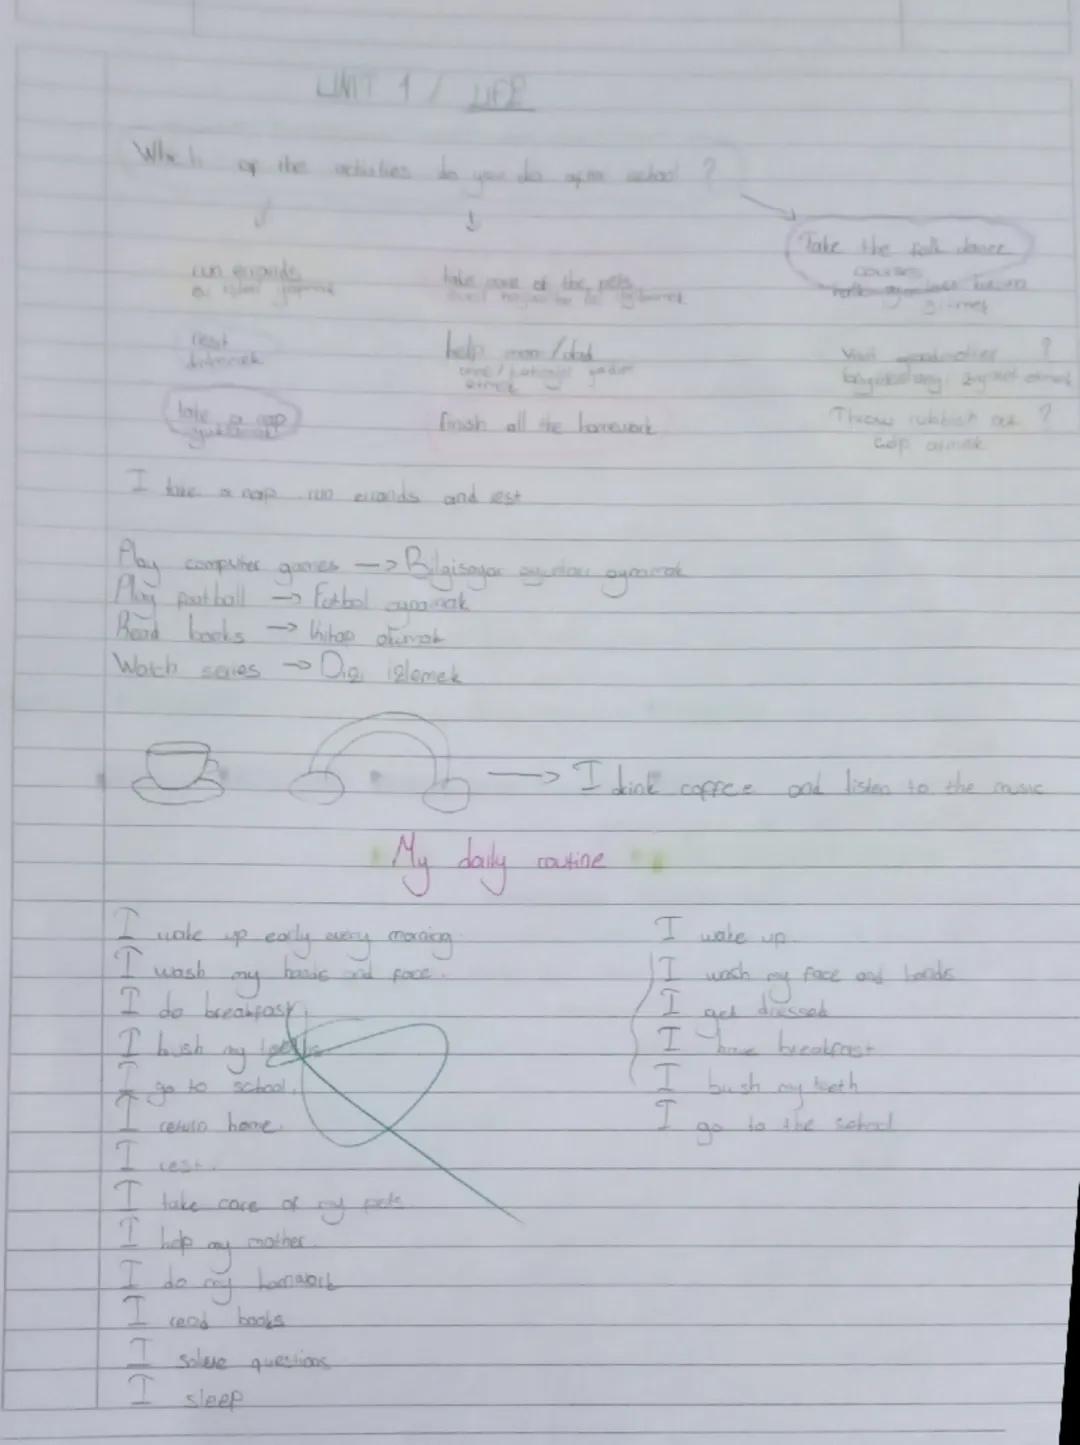 UNIT 1 / LIFE
Which of the activities do you do after school ?
Take the folk dance
courses
run errands
take care of the pets
rest
dinlenmek
help mom / dad
etmek
Visit grandmother ?
take a nap
finish all the homework
Throw rubbish out ?
çöp atmak
I take a nap run errands and rest
Play computer games → Bilgisayar oyunları oynamak
Play football → Futbol oynamak
Read books → Kitap okumak
Watch series → Dizi izlemek
→ I drink coffee and listen to the music
My daily routine
I wake up early every morning.
I wash my hands and face.
I do breakfast
I bush my teeth
I go to school.
I return home.
I rest.
I take care of my pets.
I help my mother.
I do my homework
I read books
I solve questions
I sleep
I wake up.
I wash my face and hands
I get dressed
I have breakfast
I bush my teeth
I go to the school